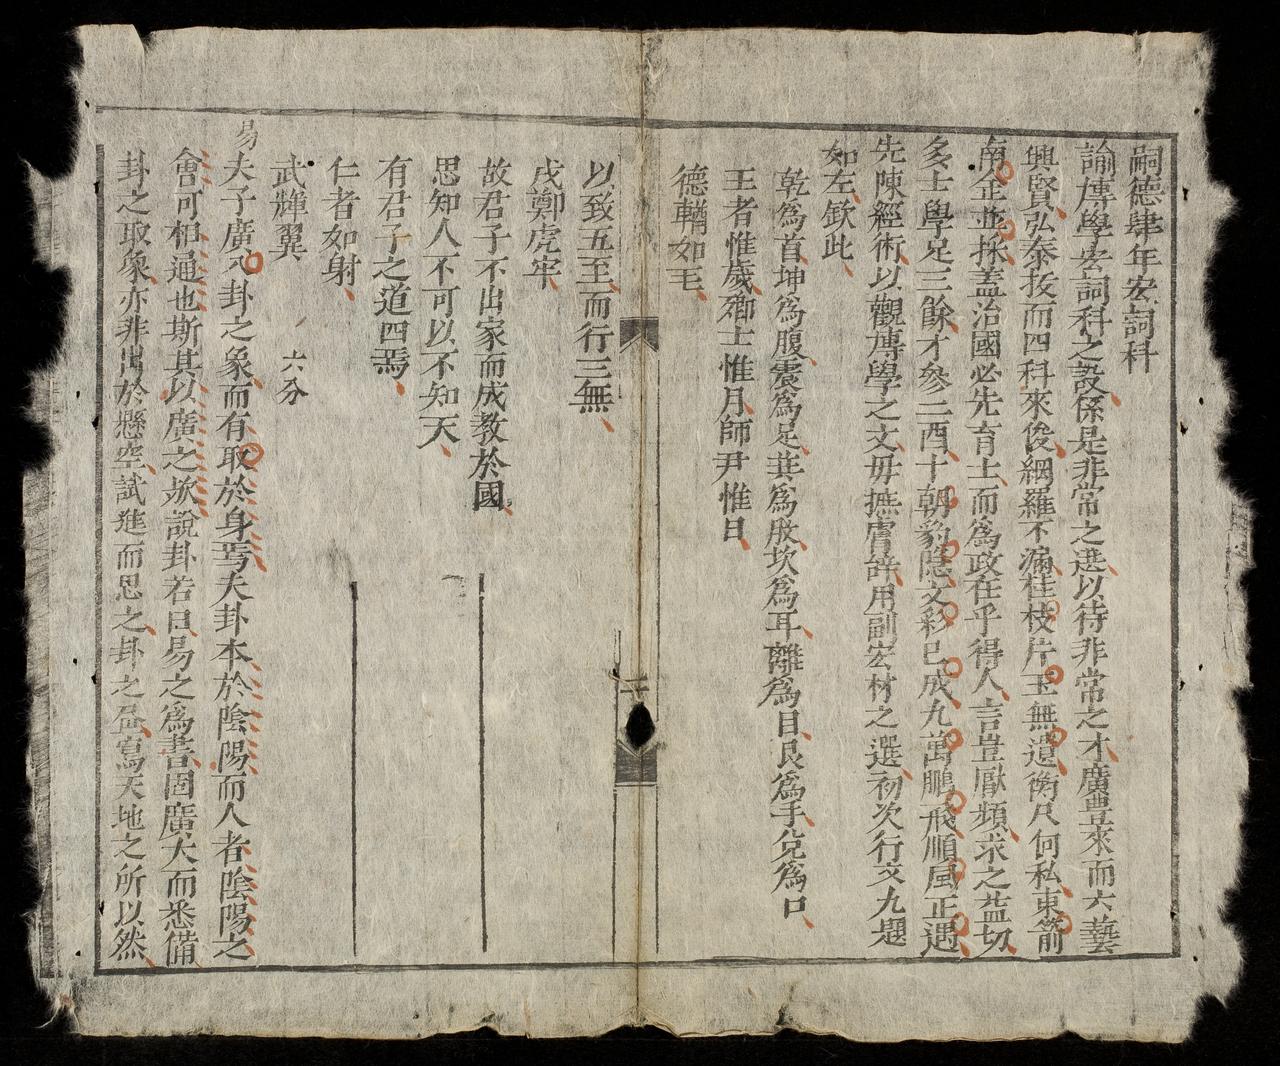 嗣德肆年宏詞科
諭博學宏詞科之設係是非常之選以待非常之才廣豐來而六藝
興賢弘泰拔而四科來俊網羅不漏桂枝片玉無遺衡尺何私東箭
南金並採蓋治國必先育士而爲政在乎得人言豈厭頻求之益切
多士學足三餘才參二酉十朝豹隱文彩已成九萬鵬飛順風正遇
先陳經術以觀博學之文毋摭膚辭用副宏材之選初次行文九題
如左欽此
乾爲首坤爲腹震爲足巽爲股坎爲耳離爲目艮爲手兌爲口
王者惟歲卿士惟月師尹惟日
德輶如毛
以致五至而行三無
戍鄭虎牢
故君子不出家而成教於國
思知人不可以不知天
有君子之道四焉
仁者如射
武輝翼 六分
易夫子廣八卦之象而有取於身焉夫卦本於陰陽而人者陰陽之
會可相通也斯其以廣之歟說卦若曰易之爲書固廣大而悉備
卦之取象亦非出於懸空試進而思之卦之畫寫天地之所以然
二